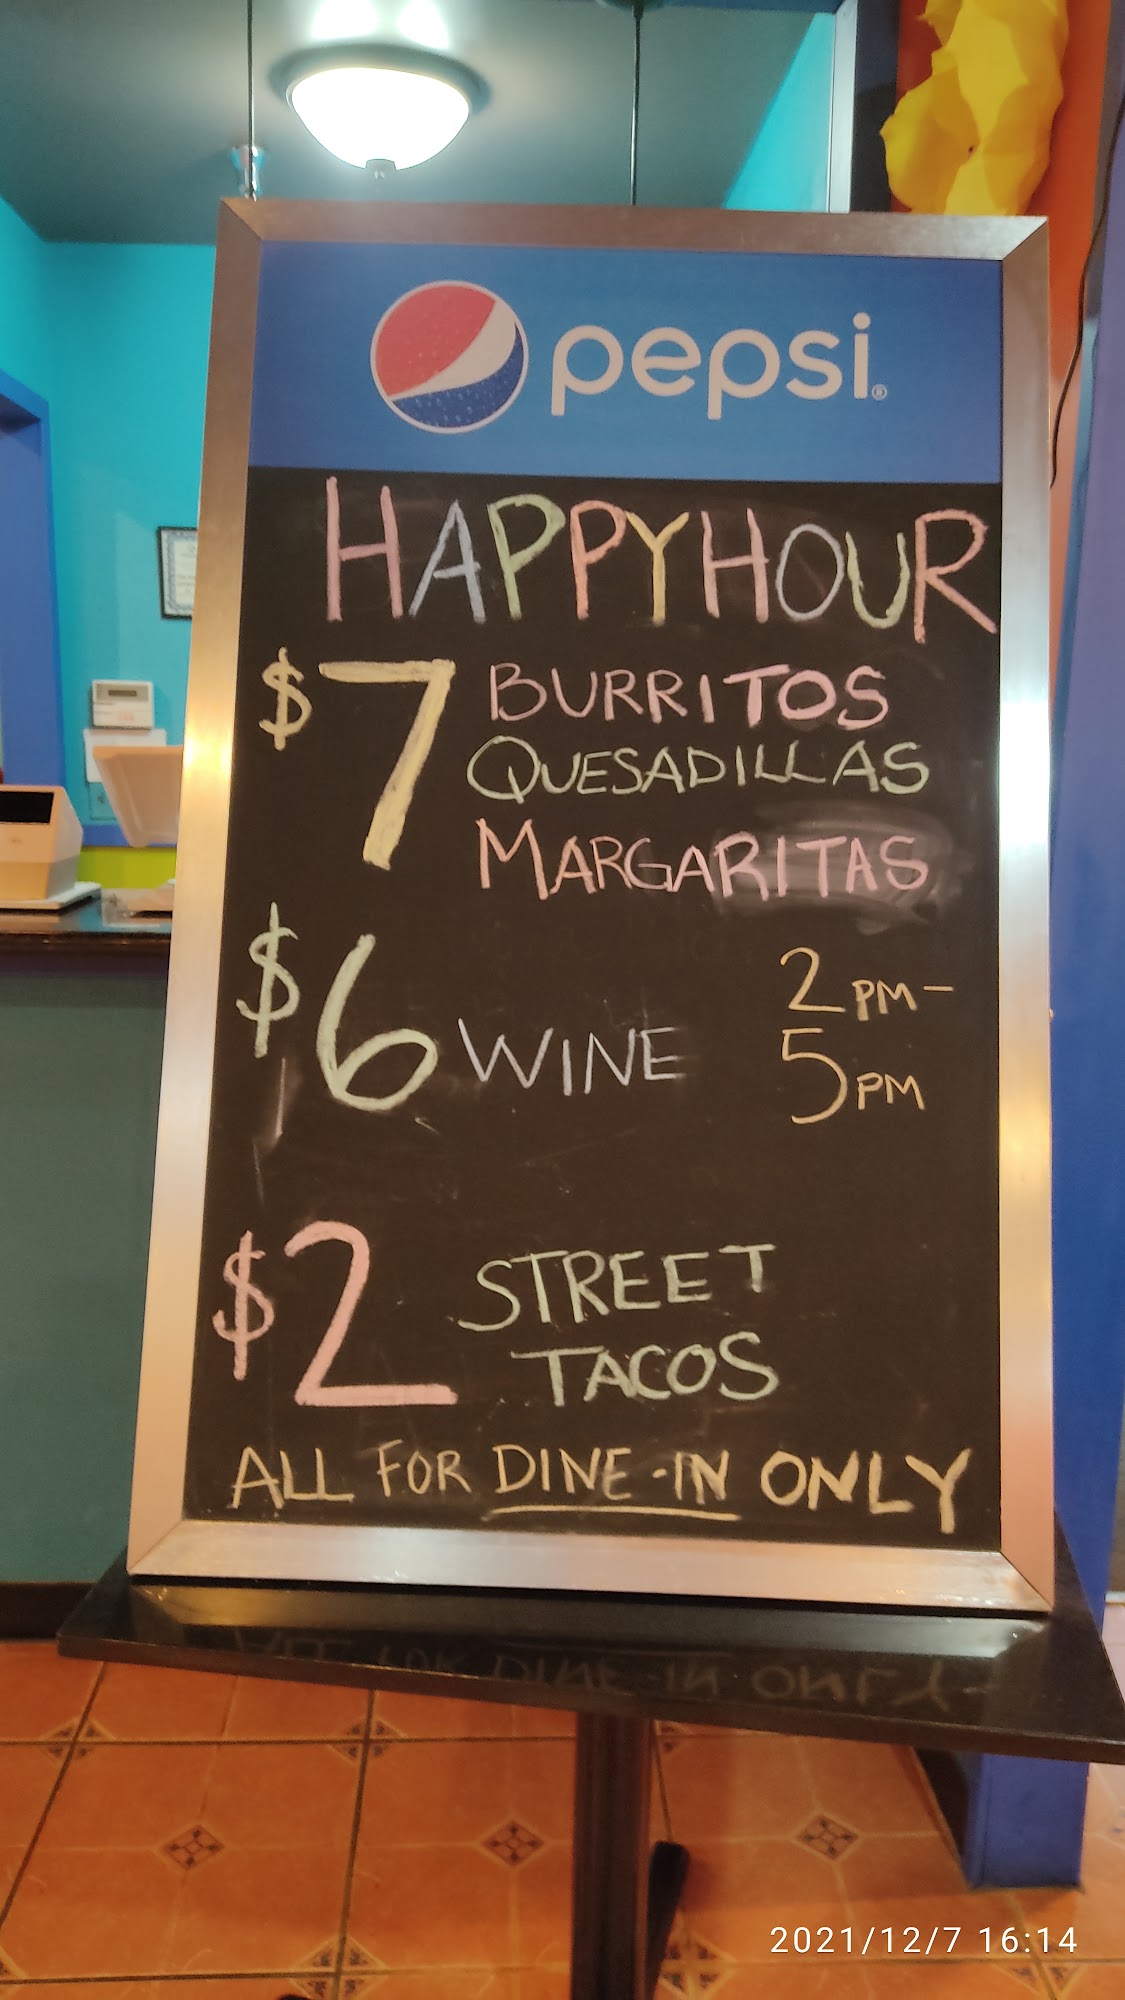 pepsi®
HAPPY HOUR
$7 BURRITOS
QUESADILLAS
MARGARITAS
$6 WINE
2PM-
5PM
$2 STREET
TACOS
ALL FOR DINE-IN ONLY
2021/12/7 16:14